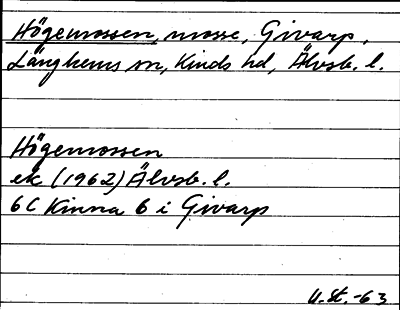 Högemossen, mosse, Givarp,
Länghems sn, Kinds hd, Älvsb. l.
Högemossen
ek (1962) Älvsb. l.
6C Kinna 6 i Givarp
U. St. -63